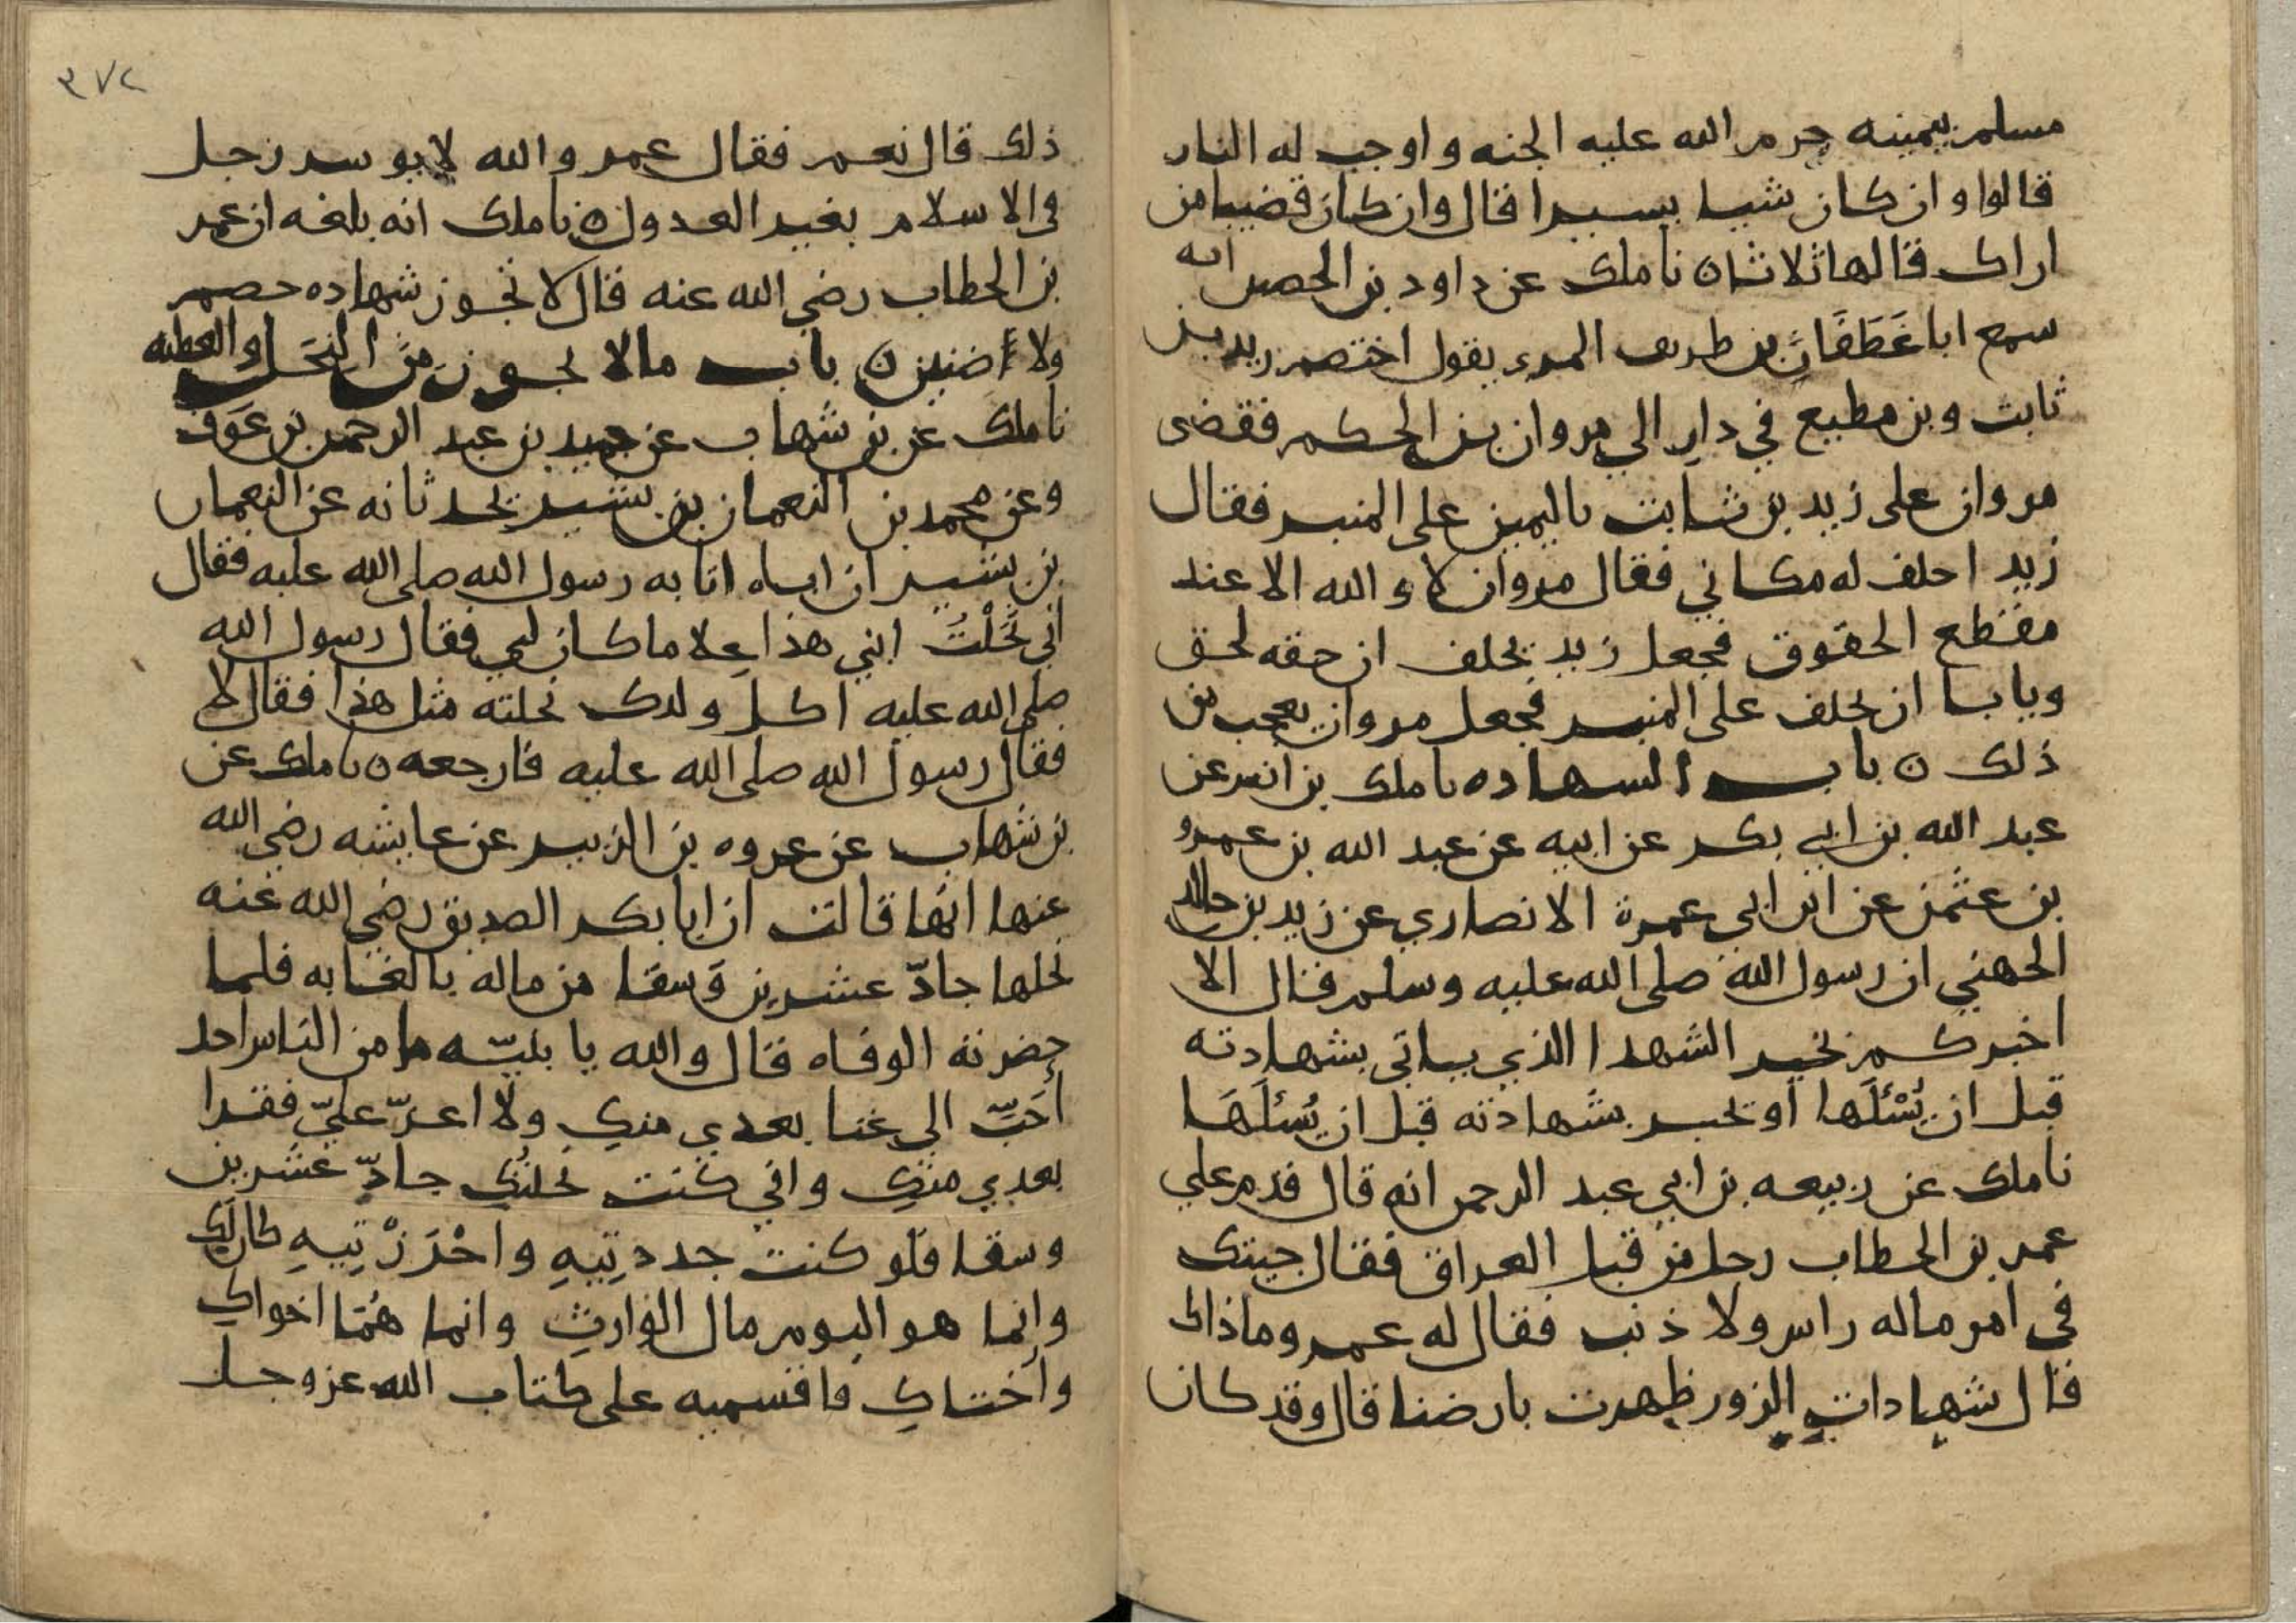 مسلم بيمينه حرم الله عليه الجنه واوجب له النار
قالوا وان كان شيا يسيرا قال وان كان قضيبا من
اراك قالها ثلاثا ه نا ملك عن داود بن الحصين انه
سمع ابا غَطَفَانَ بن طريف المري يقول اختصم زيد بن
ثابت وبن مطيع في دار الي مروان بن الحكم فقضى
مروان على زيد بن ثابت باليمين على المنبر فقال
زيد احلف له مكاني فقال مروان لا والله الا عند
مقطع الحقوق فجعل زيد يحلف ان حقه لحق
ويابا ان يحلف على المنبر فجعل مروان يعجب من
ذلك ه باب الشهاده نا ملك بن انس عن
عبد الله بن ابي بكر عن ابيه عن عبد الله بن عمرو
بن عثمن عن ابن ابي عمرة الانصاري عن زيد بن خالد
الجهني ان رسول الله صلى الله عليه وسلم قال الا
اخبركم بخير الشهدا الذي ياتي بشهادته
قبل ان يُسْئَلَها او يخبر بشهادته قبل ان يُسْئَلَهَا
نا ملك عن ربيعه بن ابي عبد الرحمن انه قال قدم على
عمر بن الخطاب رجل من قبل العراق فقال جيتك
في امر ماله راس ولا ذنب فقال له عمر وما ذاك
قال شهادات الزور ظهرت بارضنا قال وقد كان
٣٧٢
ذلك قال نعم فقال عمر والله لا يوسر رجل
في الاسلام بغير العدول ه نا ملك انه بلغه ان عمر
بن الخطاب رضي الله عنه قال لا تجوز شهاده خصم
ولا ضنين ه باب مالا يجوز من النحل والعطيه
نا ملك عن بن شهاب عن حميد بن عبد الرحمن بن عَوف
وعن محمد بن النعمان بن بشير يحدثانه عن النعمان
بن بشير ان اباه اتا به رسول الله صلى الله عليه فقال
اني نَحَلْتُ ابني هذا غلاما كان لي فقال رسول الله
صلى الله عليه اكل ولدك نحلته مثل هذا فقال لا
فقال رسول الله صلى الله عليه فارجعه ه نا ملك عن
بن شهاب عن عروه بن الزبير عن عايشه رضي الله
عنها انها قالت ان ابا بكر الصديق رضي الله عنه
نحلها جادّ عشرين وَسقا من ماله بالغابه فلما
حضرته الوفاه قال والله يا بنيّه ما من الناس احد
أحَبّ الي غنا بعدي منكِ ولا اعزّ عليّ فقرا
بعدي منكِ واني كنت نحلتُكِ جادّ عشرين
وسقا فلو كنت جددتِيهِ واحْتَزْتِيهِ كان لَكِ
وانما هو اليوم مال الوارث وانما هُمَا اخواكِ
واختاكِ فاقسميه على كتاب الله عز وجل